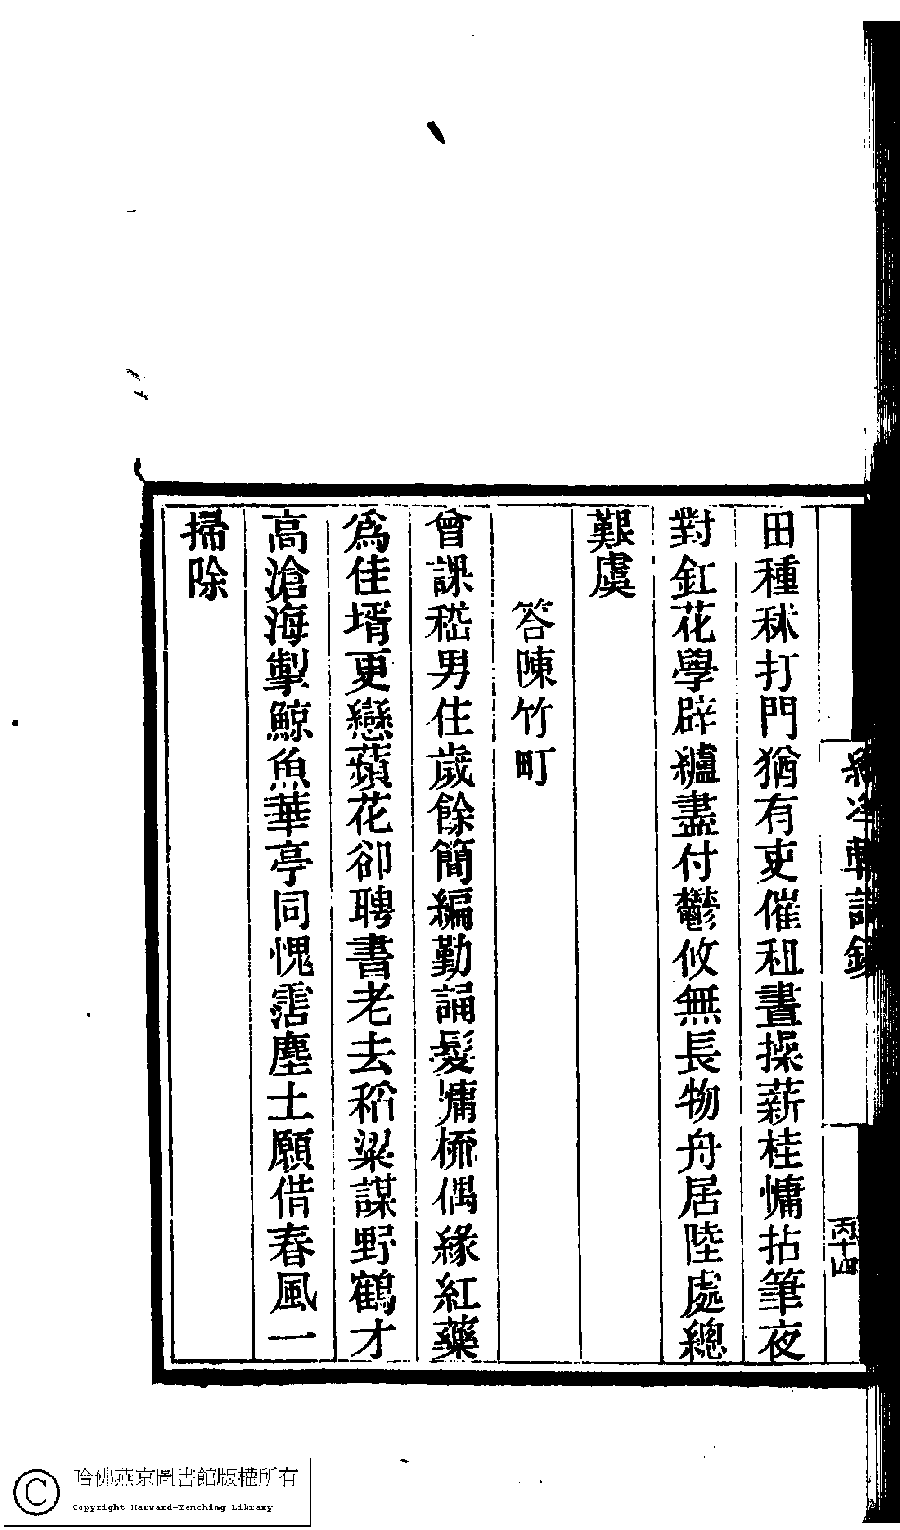 田種秫打門猶有吏催租晝操薪桂慵拈筆夜
對釭花學辟纑盡付鬱攸無長物舟居陸處總
艱虞
答陳竹町
曾課嵇男住歲餘簡編勤誦髮慵梳偶緣紅藥
爲佳壻更戀蘋花卻聘書老去稻粱謀野鶴才
高滄海掣鯨魚華亭同愧霑塵土願借春風一
掃除
丙十四
哈佛燕京圖書館版權所有
Copyright Harvard-Yenching Library